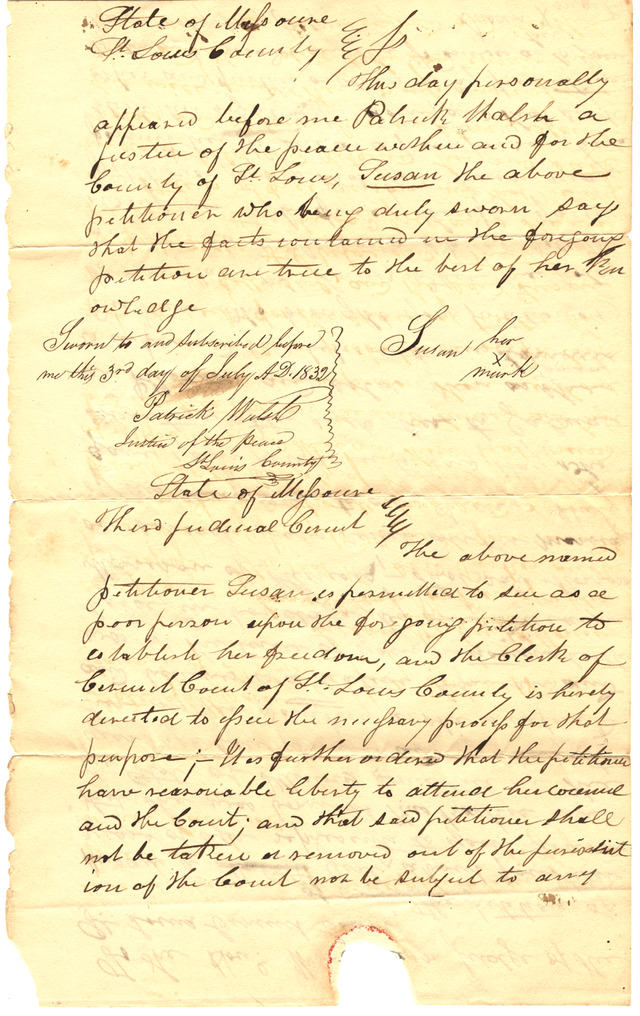 State of Missouri
St. Louis County
This day personally
appeared before me Patrick Walsh a
justice of the peace within and for the
County of St. Louis, Susan the above
petitioner who being duly sworn say
that the facts contained in the foregoing
petition are true to the best of her kn
owledge
Sworn to and subscribed before
me this 3rd day of July A.D. 1832
Patrick Walsh
Justice of the peace
St Louis County
Susan her
x
mark
State of Missouri
Third Judicial Circuit
The above named
petitioner Susan is permitted to sue as a
poor person upon the foregoing petition to
establish her freedom, and the Clerk of
Circuit Court of St. Louis County is hereby
directed to issue the necessary process for that
purpose; - It is further ordered that the petitioner
have reasonable liberty to attend her counsel
and the Court; and that said petitioner shall
not be taken or removed out of the jurisdict
ion of the Court nor be subject to any